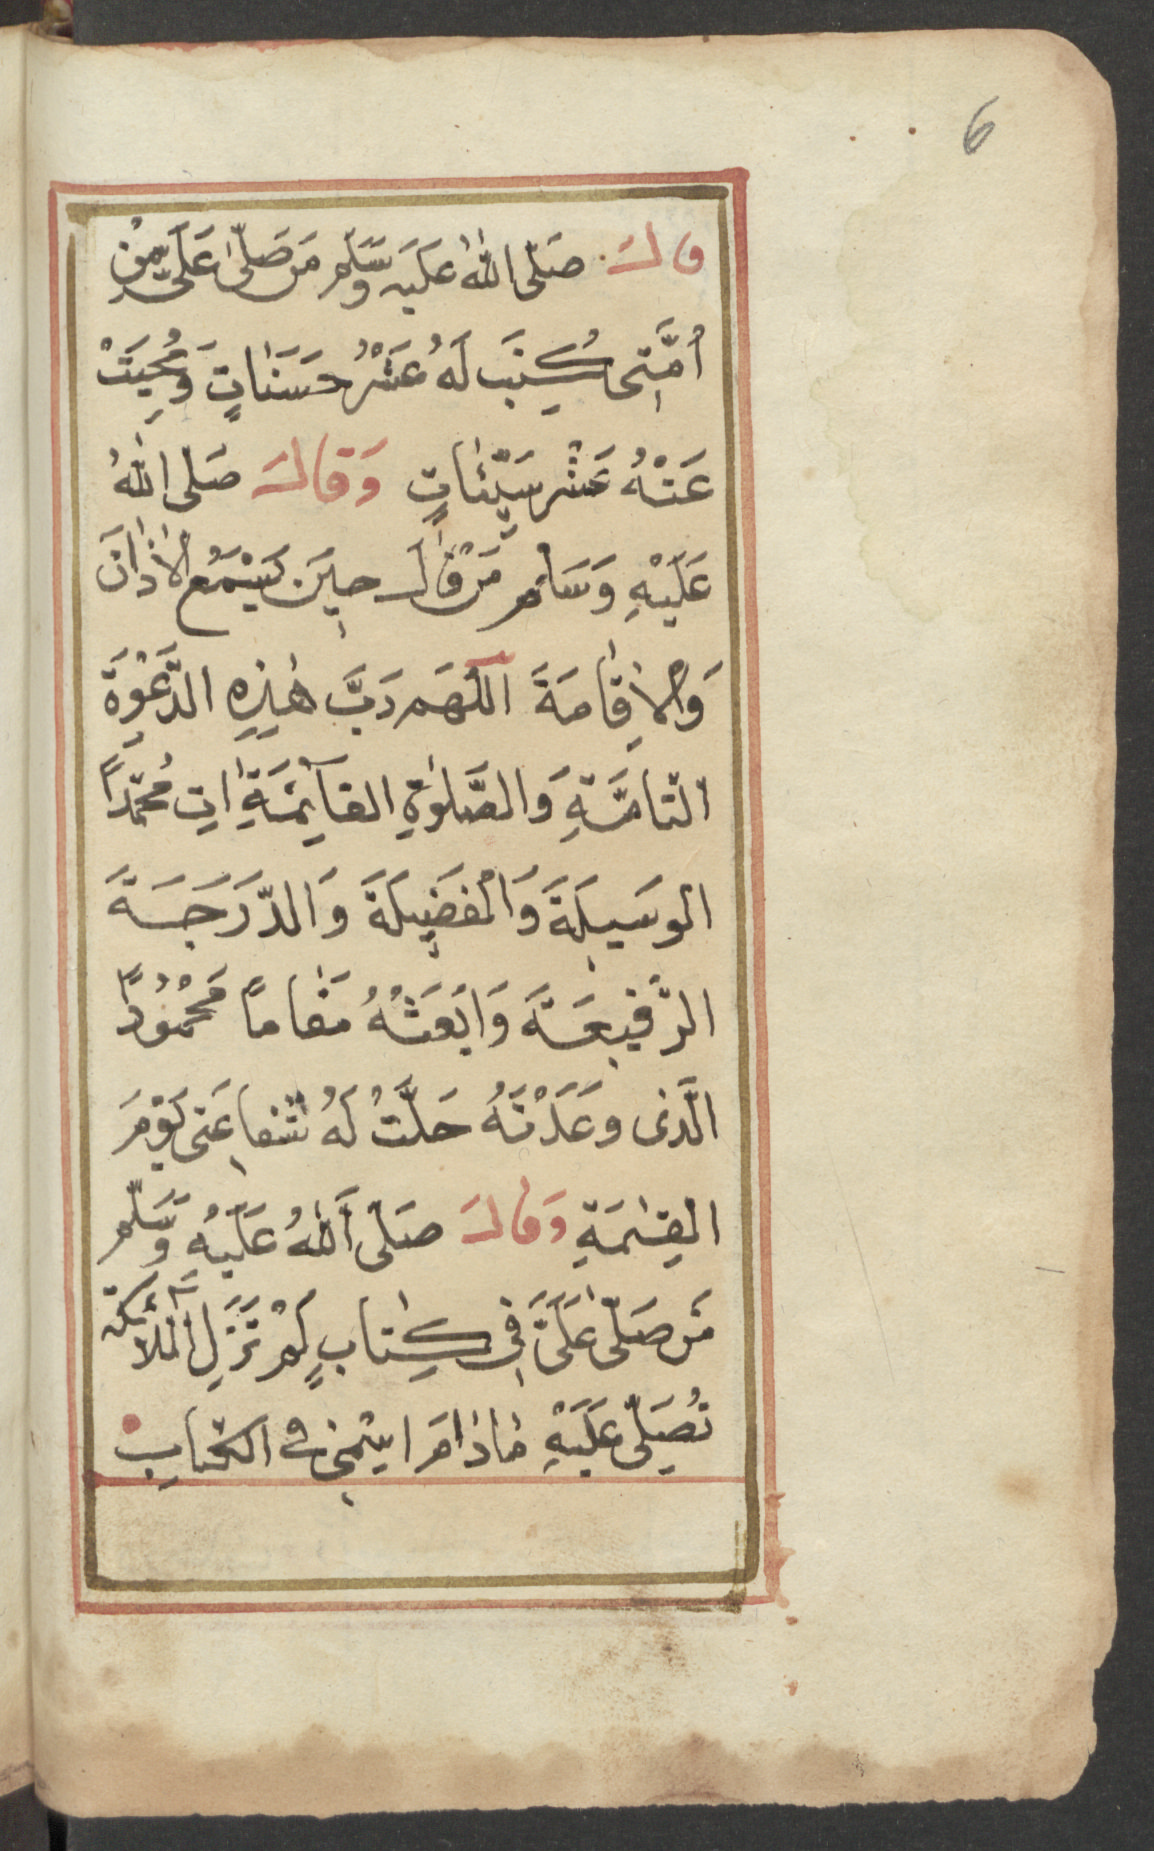 6
قالَ صَلّى اللهُ عَلَيه وَسَّلم مَن صَلّىٰ عَلَىَّ مِنْ
اُمَّتِى كُتِبَ لَهُ عَشْرُ حَسَنَاتٍ وَمُحِيَتْ
عَنْهُ عَشْر سَيّئاتٍ وَقالَ صَلى اللهُ
عَلَيْهِ وَسَلم مَنْ قَالَ حِينَ يَسْمَع الاَذانَ
وَالاِقامَةَ اللّهمَ رَبَّ هٰذِهِ الدَّعْوَةِ
التامَّةِ وَالصَّلوٰةِ القآيِمَةِ اٰتِ مُحَمّداً
الوسَيِلَةَ وَالفَضِيلَةَ وَالدّرَجَةَ
الرَّفيعَةَ وَابَعَثْهُ مَقاماً مَحْمُوداً
الَّذى وعَدْتَهُ حَلَّتْ لَهُ شَفاعَتى يَوْمَ
القِيٰمَةِ وَقالَ صَلّى اَللهُ عَلَيْهِ وَسَّلم
مَن صَلّىٰ عَلَىَّ فِى كِتابٍ لَمْ تَزَلِ الملآئكة
تُصَلِّى عَلَيْهِ مٰا دٰامَ اِسْمِى في الكتابِ